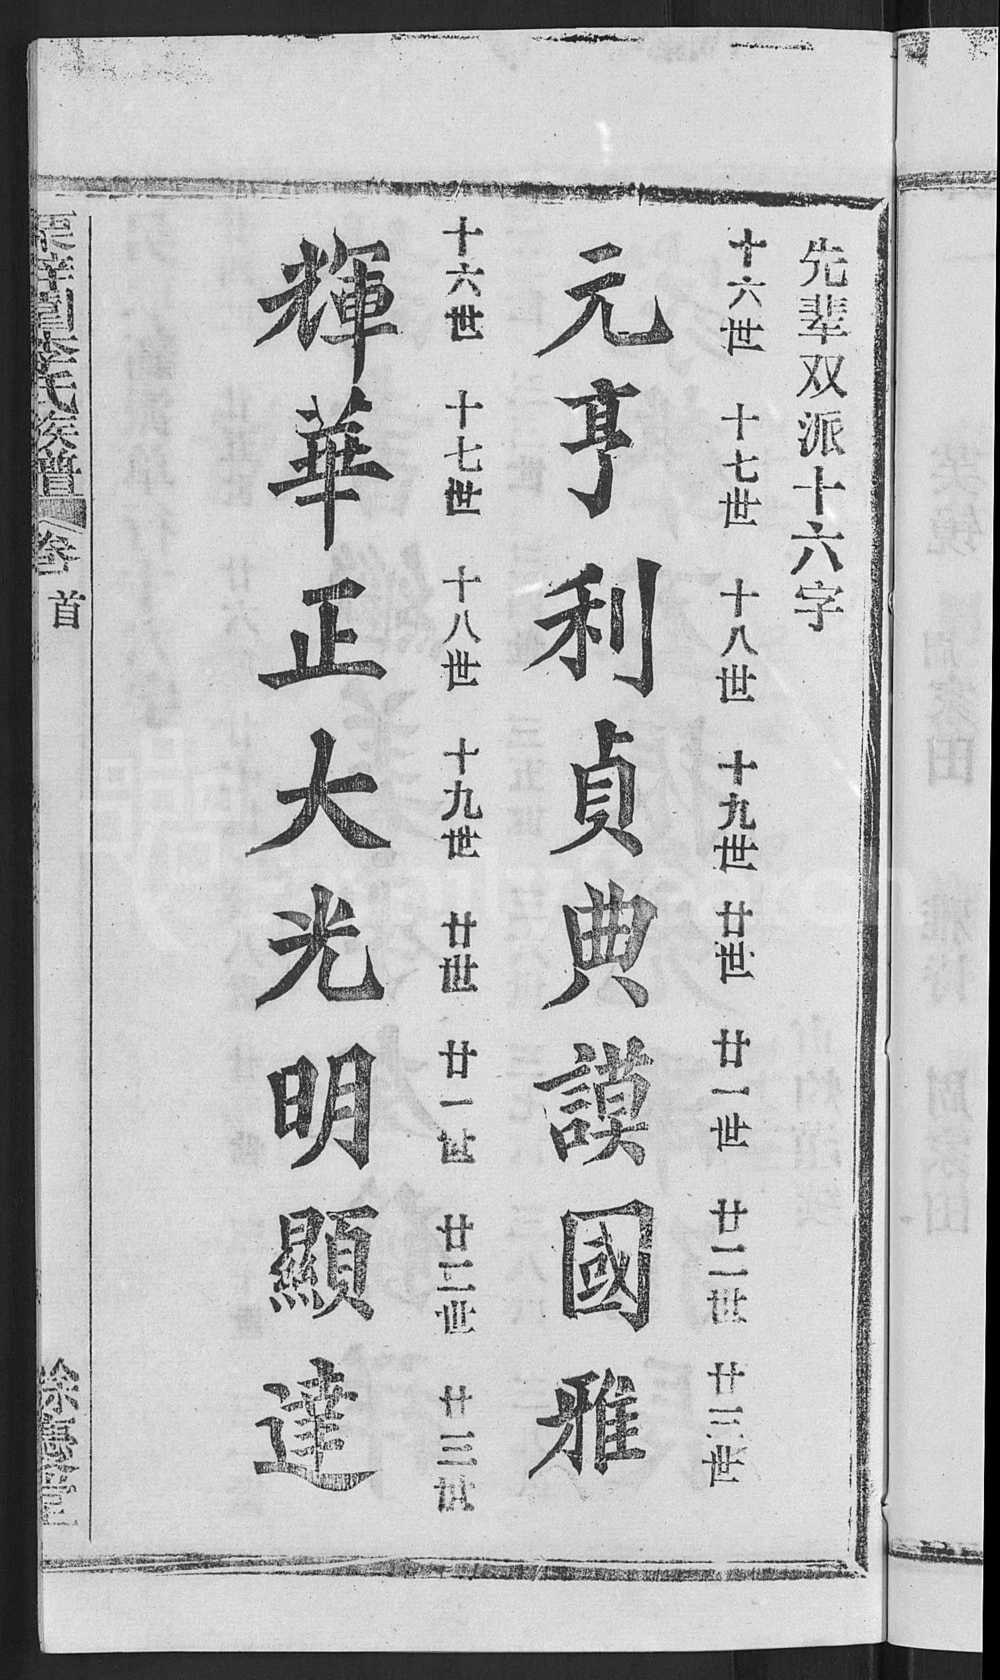 先辈双派十六字
十六世 十七世 十八世 十九世 廿世 廿一世 廿二世 廿三世
元亨利貞典謨國雅
十六世 十七世 十八世 十九世 廿世 廿一世 廿二世 廿三世
輝華正大光明顯達
李氏族譜 卷 首